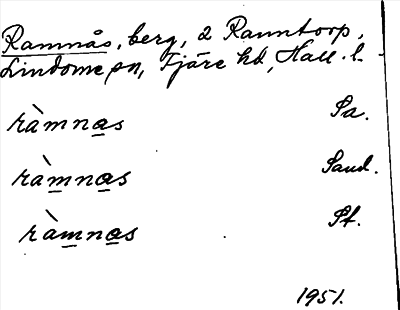 Ramnås, berg, å Ranntorp,
Lindome sn, Fjäre hd, Hall. l.
ràmnas Pa.
ràmnas Sand.
ràmnas Pf.
1951.